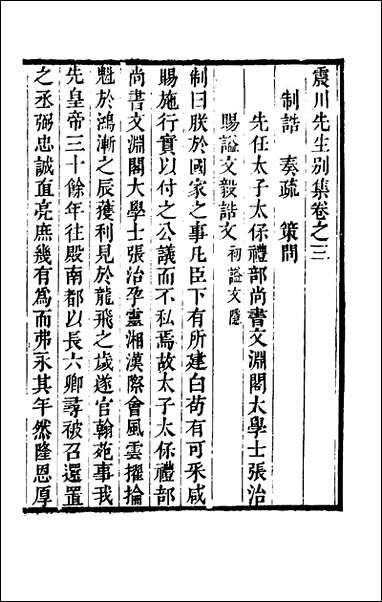 震川先生別集卷之三
制誥　奏疏　策問
先任太子太保禮部尚書文淵閣大學士張治
賜謚文毅誥文　初謚文隱
制曰朕於國家之事凡臣下有所建白苟有可采咸
賜施行實以付之公議而不私焉故太子太保禮部
尚書文淵閣大學士張治孕靈湘漢際會風雲擢掄
魁於鴻漸之辰獲利見於龍飛之歲遂官翰苑事我
先皇帝三十餘年往殿南都以長六卿尋被召還置
之丞弼忠誠直亮庶幾有為而弗永其年然隆恩厚